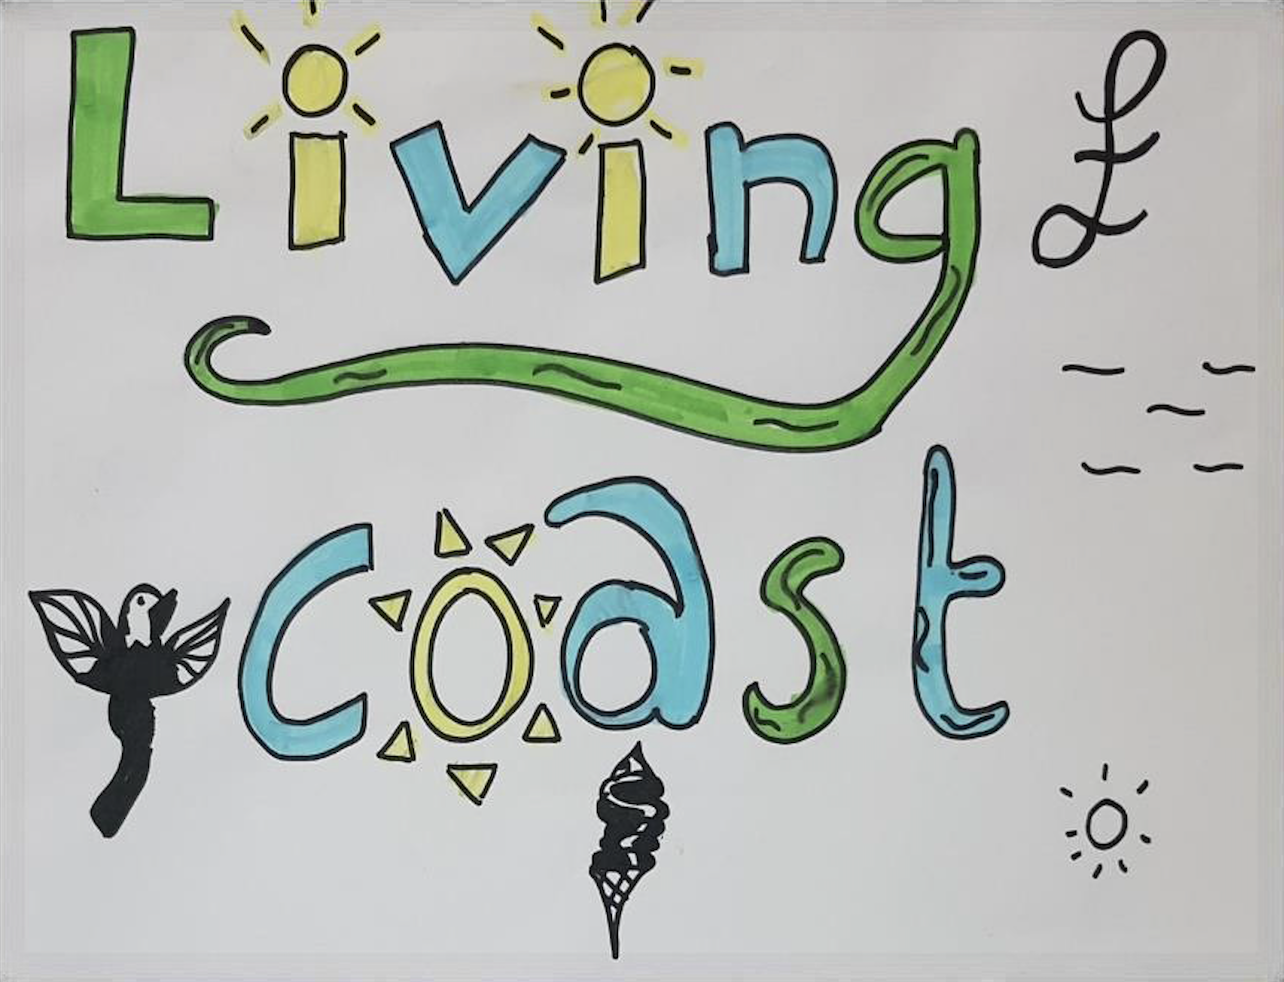 Living £
Coast